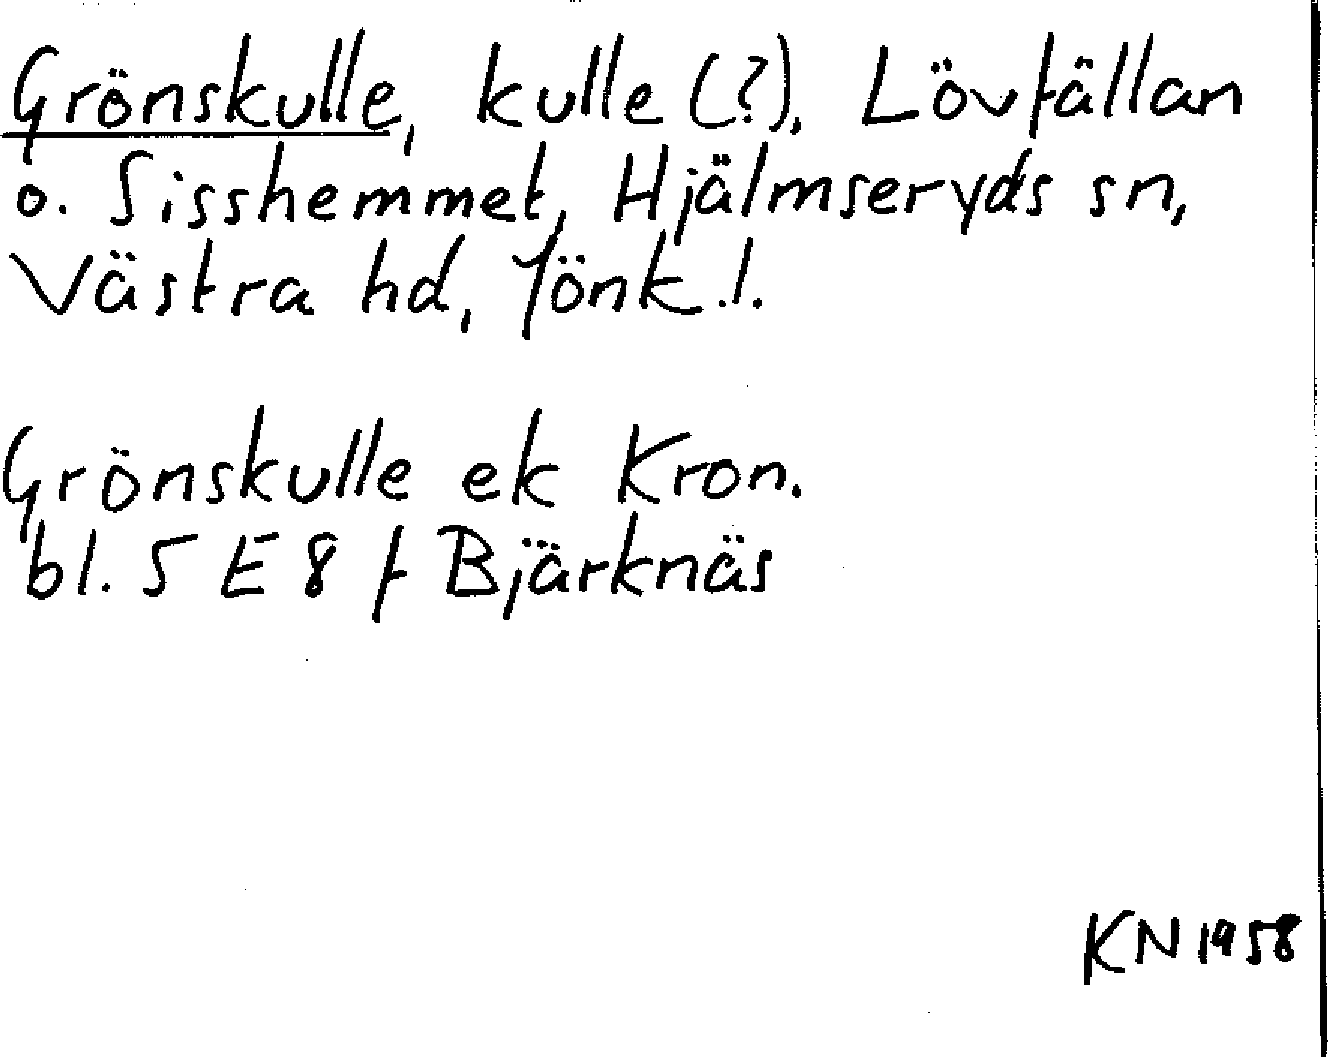 Grönskulle, kulle (?), Lövfällan
o. Sisshemmet, Hjälmseryds sn,
Västra hd, Jönk.l.
Grönskulle ek Kron.
bl. 5 E 8 f Bjärknäs
KN 1958